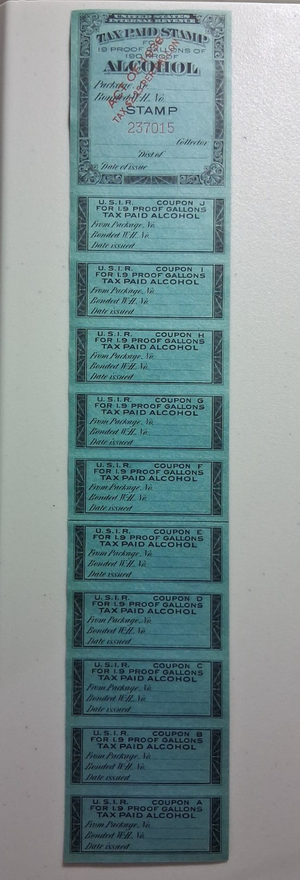 UNITED STATES
INTERNAL REVENUE
TAX-PAID STAMP
FOR
19 PROOF GALLONS OF
190 PROOF
ALCOHOL
ACT OF 1938
Package No.
Bonded W.H. No.
STAMP
237015
Collector
Dist of
Date of issue
U.S.I.R. COUPON J
FOR 1.9 PROOF GALLONS
TAX PAID ALCOHOL
From Package, No.
Bonded W.H. No.
Date issued
U.S.I.R. COUPON I
FOR 1.9 PROOF GALLONS
TAX PAID ALCOHOL
From Package, No.
Bonded W.H. No.
Date issued
U.S.I.R. COUPON H
FOR 1.9 PROOF GALLONS
TAX PAID ALCOHOL
From Package, No.
Bonded W.H. No.
Date issued
U.S.I.R. COUPON G
FOR 1.9 PROOF GALLONS
TAX PAID ALCOHOL
From Package, No.
Bonded W.H. No.
Date issued
U.S.I.R. COUPON F
FOR 1.9 PROOF GALLONS
TAX PAID ALCOHOL
From Package, No.
Bonded W.H. No.
Date issued
U.S.I.R. COUPON E
FOR 1.9 PROOF GALLONS
TAX PAID ALCOHOL
From Package, No.
Bonded W.H. No.
Date issued
U.S.I.R. COUPON D
FOR 1.9 PROOF GALLONS
TAX PAID ALCOHOL
From Package, No.
Bonded W.H. No.
Date issued
U.S.I.R. COUPON C
FOR 1.9 PROOF GALLONS
TAX PAID ALCOHOL
From Package, No.
Bonded W.H. No.
Date issued
U.S.I.R. COUPON B
FOR 1.9 PROOF GALLONS
TAX PAID ALCOHOL
From Package, No.
Bonded W.H. No.
Date issued
U.S.I.R. COUPON A
FOR 1.9 PROOF GALLONS
TAX PAID ALCOHOL
From Package, No.
Bonded W.H. No.
Date issued